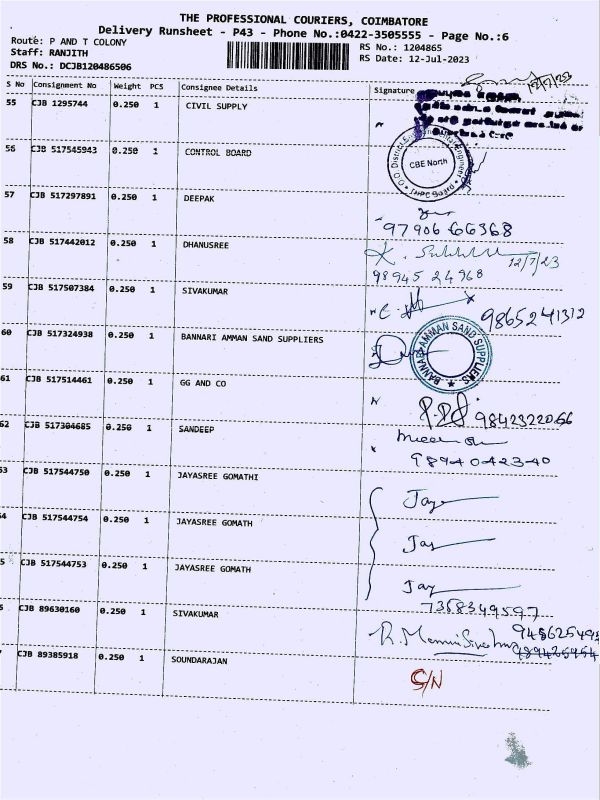 THE PROFESSIONAL COURIERS, COIMBATORE
Delivery Runsheet - P43 - Phone No.:0422-3505555 - Page No.:6
Route: P AND T COLONY
Staff: RANJITH
DRS No.: DCJB120486506
RS No.: 1204865
RS Date: 12-Jul-2023
S No Consignment No Weight PCS Consignee Details Signature
12/7/23
55 CJB 1295744 0.250 1 CIVIL SUPPLY
56 CJB 517545943 0.250 1 CONTROL BOARD
CBE North
57 CJB 517297891 0.250 1 DEEPAK
97906 66368
58 CJB 517442012 0.250 1 DHANUSREE
12/7/23
98945 24968
59 CJB 517507384 0.250 1 SIVAKUMAR
9865241312
60 CJB 517324938 0.250 1 BANNARI AMMAN SAND SUPPLIERS
BANNARI AMMAN SAND SUPPLIERS
61 CJB 517514461 0.250 1 GG AND CO
9842322066
62 CJB 517304685 0.250 1 SANDEEP
9894042340
53 CJB 517544750 0.250 1 JAYASREE GOMATHI
Jaye
54 CJB 517544754 0.250 1 JAYASREE GOMATH
Jay
5 CJB 517544753 0.250 1 JAYASREE GOMATH
Jay
7368349597
6 CJB 89630160 0.250 1 SIVAKUMAR
7 CJB 89385918 0.250 1 SOUNDARAJAN
S/N